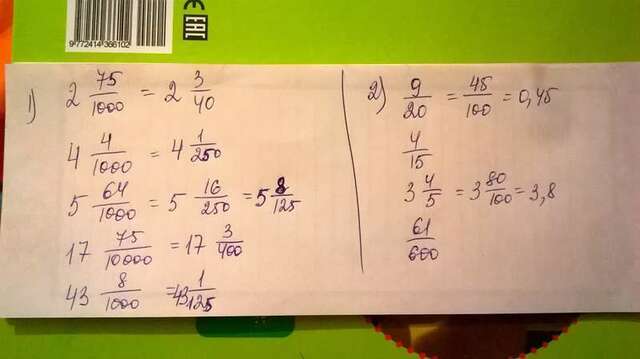 9 772414 366102
EAC
1) 2 75/1000 = 2 3/40
4 4/1000 = 4 1/250
5 64/1000 = 5 16/250 = 5 8/125
17 75/10000 = 17 3/400
43 8/1000 = 43 1/125
2) 9/20 = 45/100 = 0,45
4/15
3 4/5 = 3 80/100 = 3,8
61/600